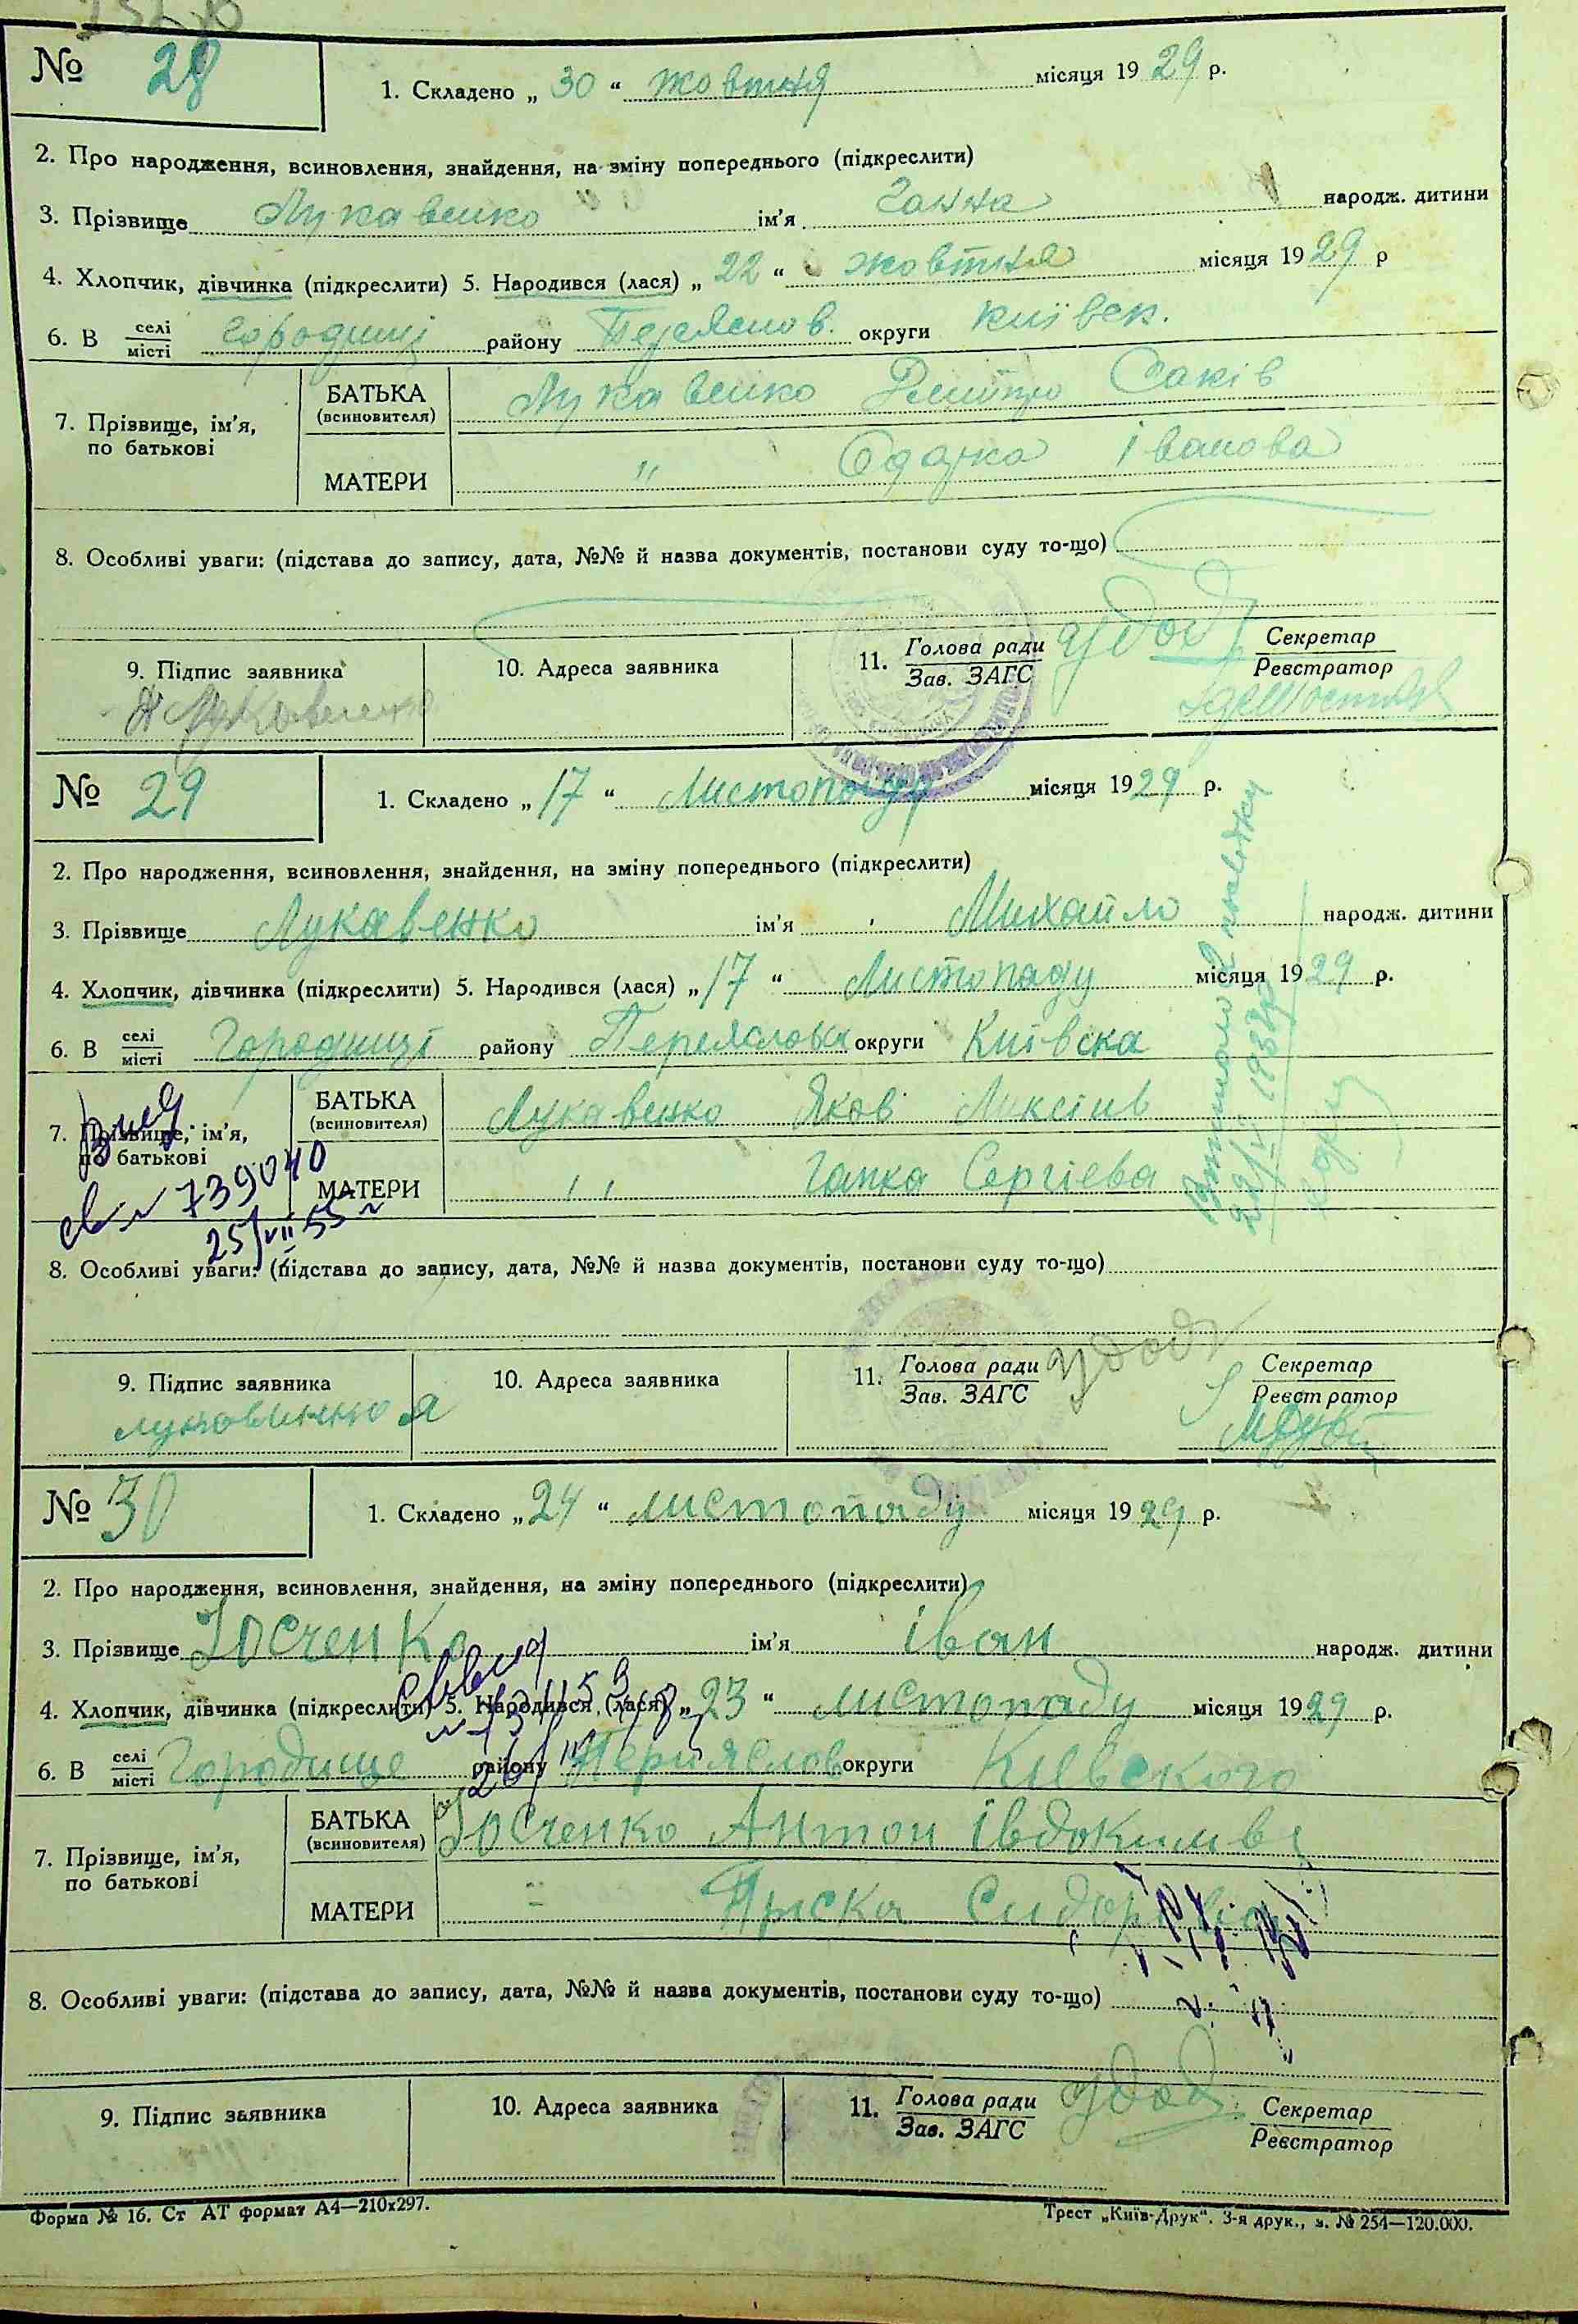 № 28
1. Складено „ 30 “ жовтня місяця 1929 р.
2. Про народження, всиновлення, знайдення, на зміну попереднього (підкреслити)
3. Прізвище Лукавенко ім’я Ганна народж. дитини
4. Хлопчик, дівчинка (підкреслити) 5. Народився (лася) „ 22 “ жовтня місяця 1929 р
6. В селі/місті Городищі району Переяслов. округи Київск.
7. Прізвище, ім’я, по батькові
БАТЬКА (всиновителя) Лукавенко Дмитро Саків
МАТЕРИ " Одарка Іванова
8. Особливі уваги: (підстава до запису, дата, №№ й назва документів, постанови суду то-що)
9. Підпис заявника
Лукавенко
10. Адреса заявника
11. Голова ради/Зав. ЗАГС Удод
Секретар/Реєстратор
№ 29
1. Складено „ 17 “ Листопаду місяця 1929 р.
2. Про народження, всиновлення, знайдення, на зміну попереднього (підкреслити)
3. Прізвище Лукавенко ім’я Михайло народж. дитини
4. Хлопчик, дівчинка (підкреслити) 5. Народився (лася) „ 17 “ Листопаду місяця 1929 р.
6. В селі/місті Городищі району Переяславск округи Київска
7. Прізвище, ім’я, по батькові
БАТЬКА (всиновителя) Лукавенко Яков
МАТЕРИ " Гапка Сергієва
св № 739040
25/VII 55
8. Особливі уваги: (підстава до запису, дата, №№ й назва документів, постанови суду то-що)
9. Підпис заявника
10. Адреса заявника
11. Голова ради/Зав. ЗАГС Удод
Секретар/Реєстратор
№ 30
1. Складено „ 24 “ листопаду місяця 1929 р.
2. Про народження, всиновлення, знайдення, на зміну попереднього (підкреслити)
3. Прізвище Юсченко ім’я Іван народж. дитини
4. Хлопчик, дівчинка (підкреслити) 5. Народився (лася) „ 23 “ листопаду місяця 1929 р.
6. В селі/місті Городище району Перияслов округи Київского
7. Прізвище, ім’я, по батькові
БАТЬКА (всиновителя) Юсченко Антон Івдокимів
МАТЕРИ = Приска
8. Особливі уваги: (підстава до запису, дата, №№ й назва документів, постанови суду то-що)
9. Підпис заявника
10. Адреса заявника
11. Голова ради/Зав. ЗАГС Удод
Секретар/Реєстратор
Форма № 16. Ст АТ формат А4—210х297.
Трест „Київ-Друк“. 3-я друк., з. № 254—120.000.